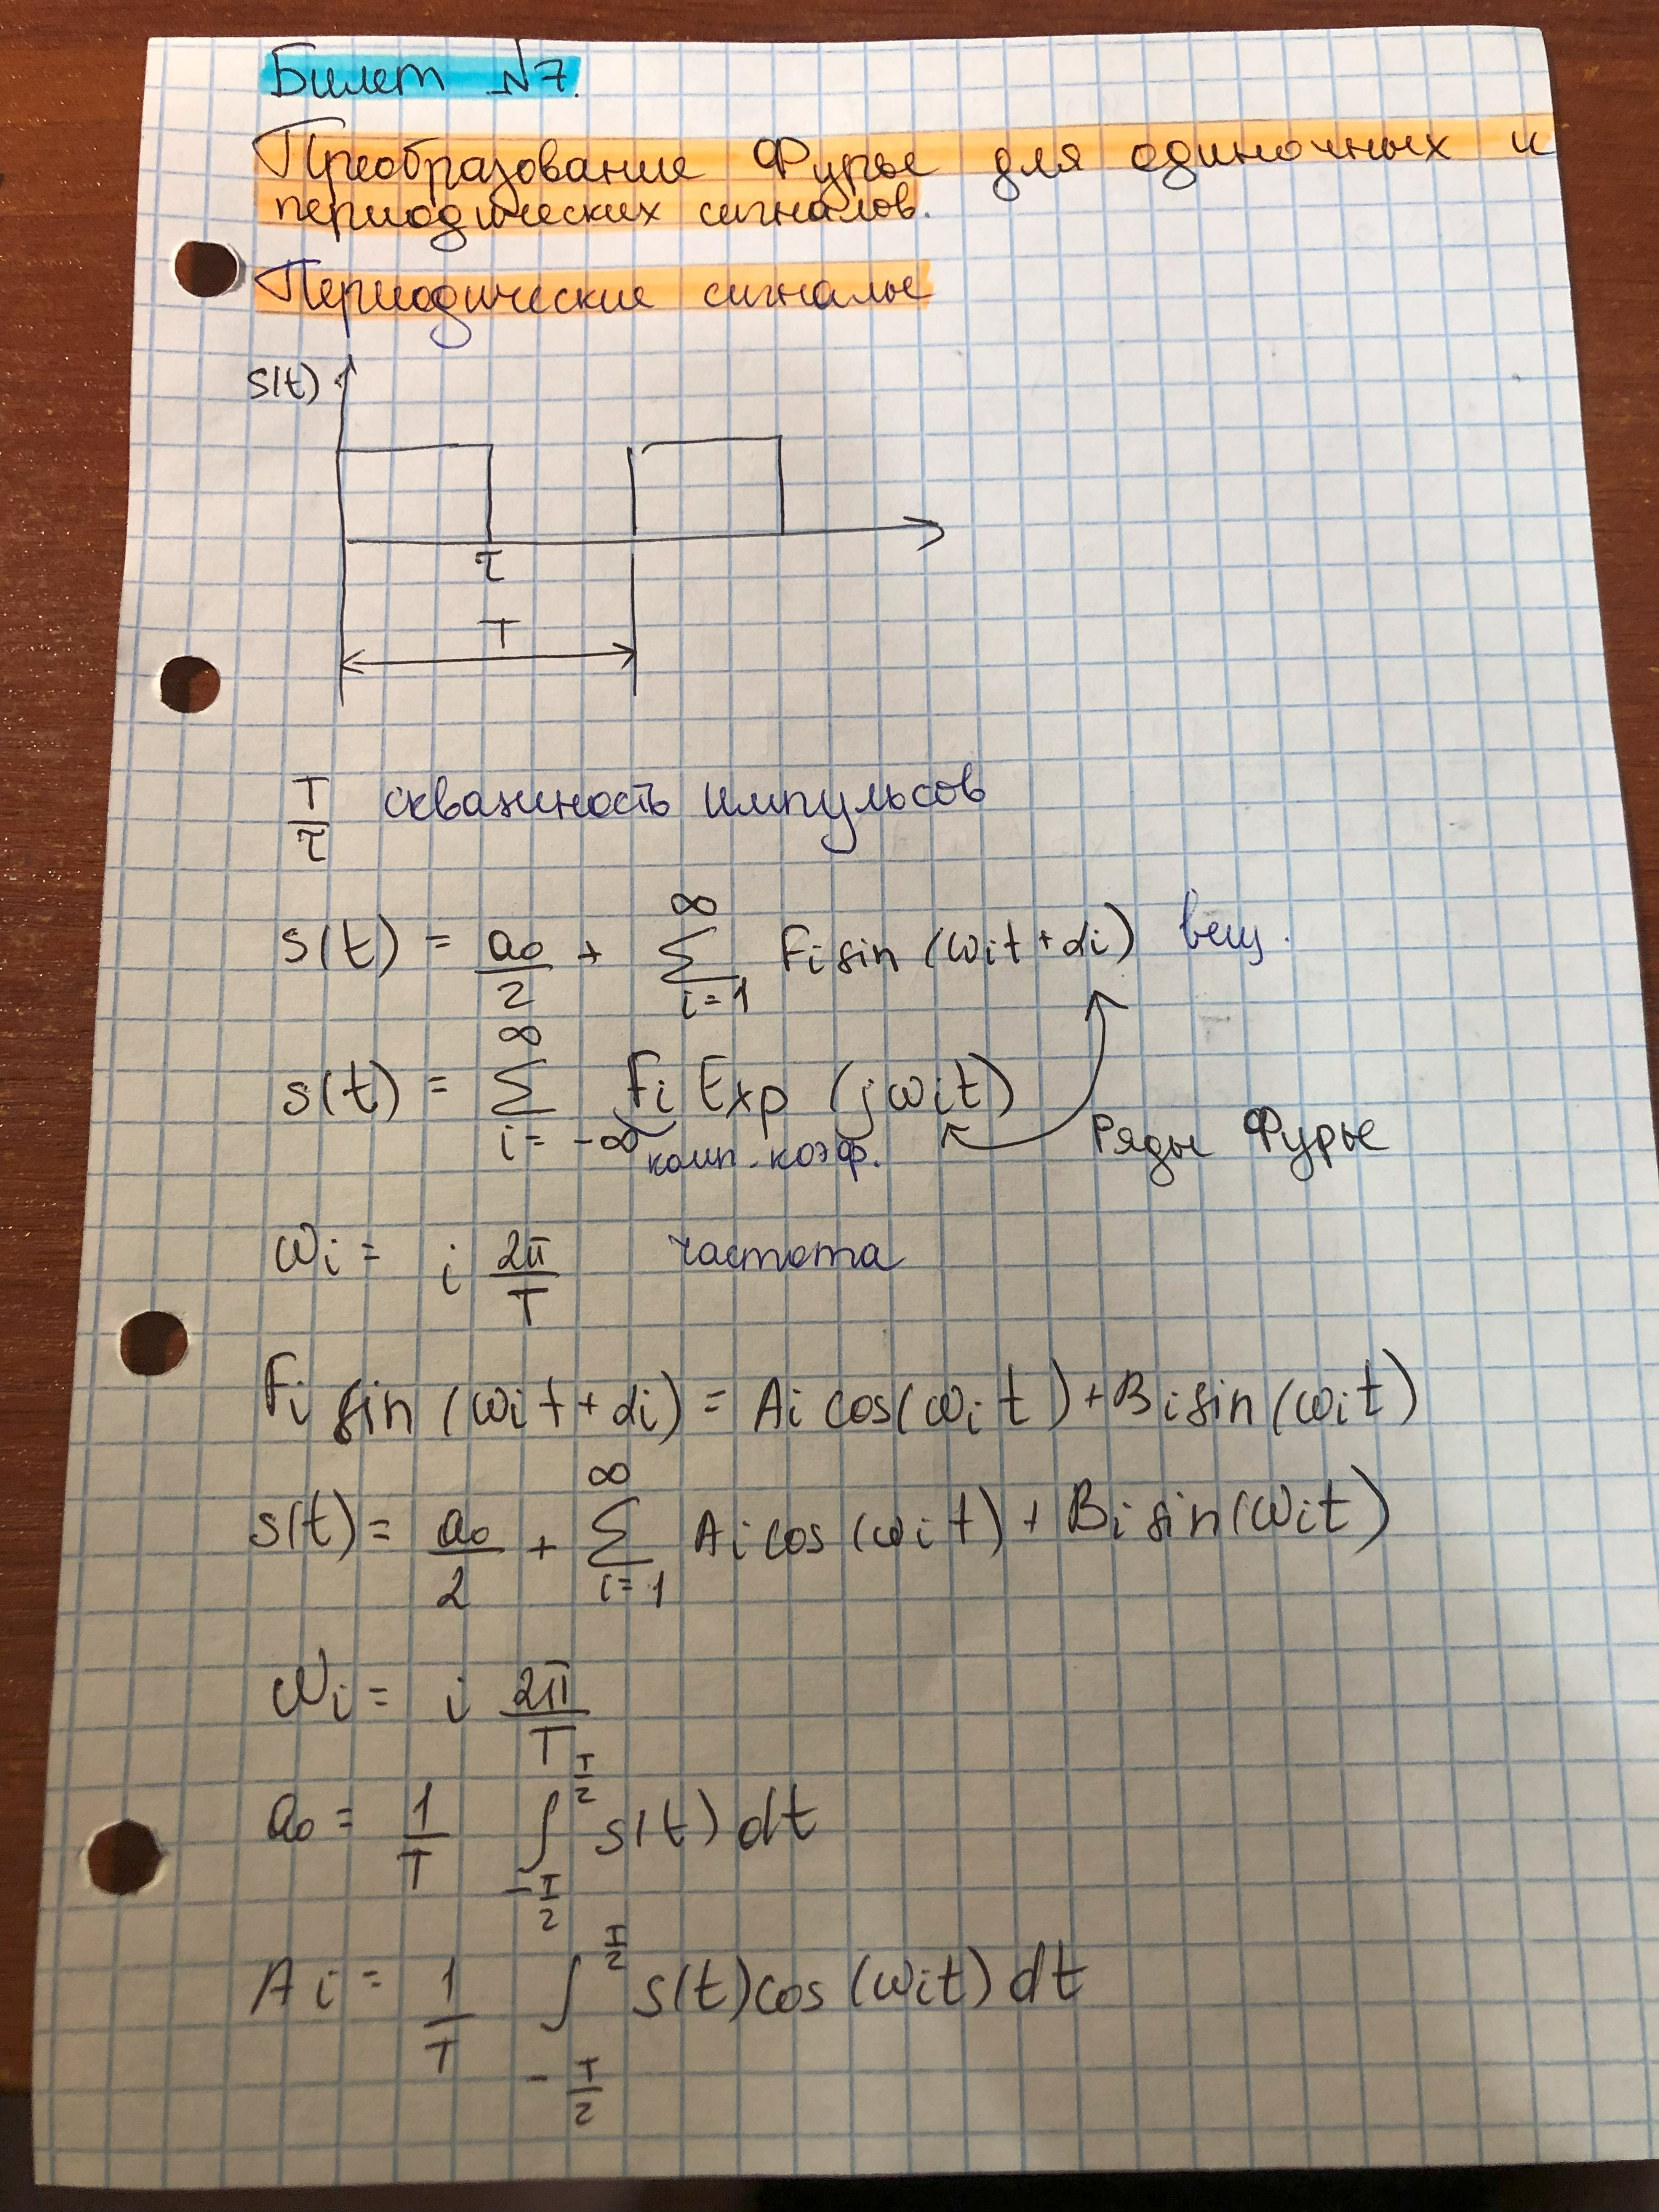 Билет №7.
Преобразование Фурье для одиночных и
периодических сигналов.
Периодические сигналы
s(t)
τ
T
T/τ скважность импульсов
s(t) = a₀/2 + ∑_{i=1}^{∞} Fᵢ sin (ωᵢt + αᵢ) вещ.
s(t) = ∑_{i=-∞}^{∞} Fᵢ Exp (jωᵢt)
комп. коэф.
Ряды Фурье
ωᵢ = i 2π/T частота
Fᵢ sin (ωᵢt + αᵢ) = Aᵢ cos(ωᵢt) + Bᵢ sin (ωᵢt)
s(t) = a₀/2 + ∑_{i=1}^{∞} Aᵢ cos (ωᵢt) + Bᵢ sin(ωᵢt)
ωᵢ = i 2π/T
a₀ = 1/T ∫_{-T/2}^{T/2} s(t) dt
Aᵢ = 1/T ∫_{-T/2}^{T/2} s(t) cos (ωᵢt) dt